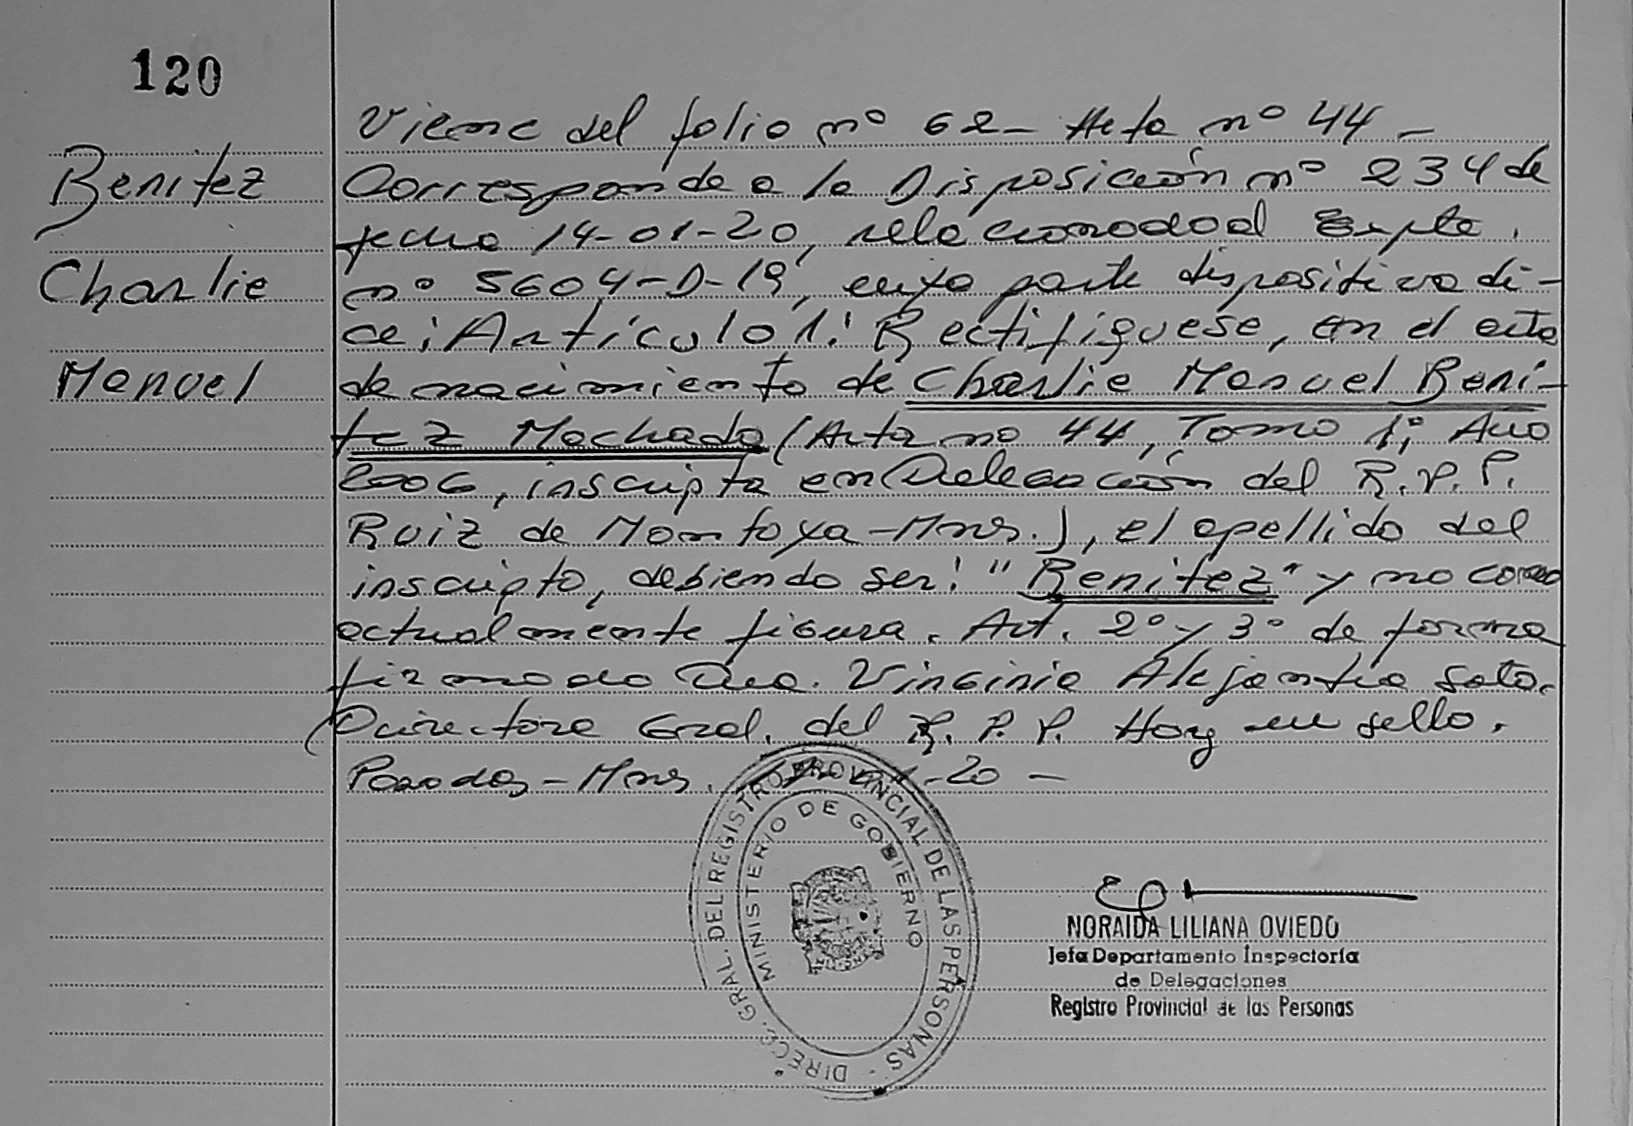 120
Benitez
Charlie
Manuel
Viene del folio nº 62 - Acta nº 44 -
Corresponde a la Disposición nº 234 de
fecha 14-01-20, relacionado al Expte.
nº 5604-D-19, cuya parte dispositiva di-
ce: Artículo 1: Rectifiquese, en el acta
de nacimiento de Charlie Manuel Beni-
tez Machado (Acta no 44, Tomo 1; Año
2006, inscripta en Delegación del R.P.P.
Ruiz de Montoya - Mnes.), el apellido del
inscripto, debiendo ser: "Benitez" y no como
actualmente figura. Art. 2º y 3º de forma
firmado Dra. Virginia Alejandra Soto.
Directora Gral. del R.P.P. Hay un sello.
Posadas - Mnes. -20 -
DIRECC. GRAL. DEL REGISTRO PROVINCIAL DE LAS PERSONAS -
MINISTERIO DE GOBIERNO
NORAIDA LILIANA OVIEDO
Jefa Departamento Inspectoría
de Delegaciones
Registro Provincial de las Personas